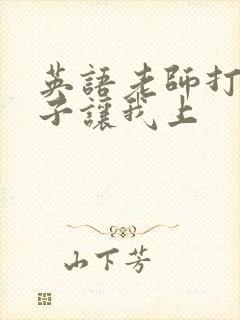 英語老師打
子讓我上
山下芳